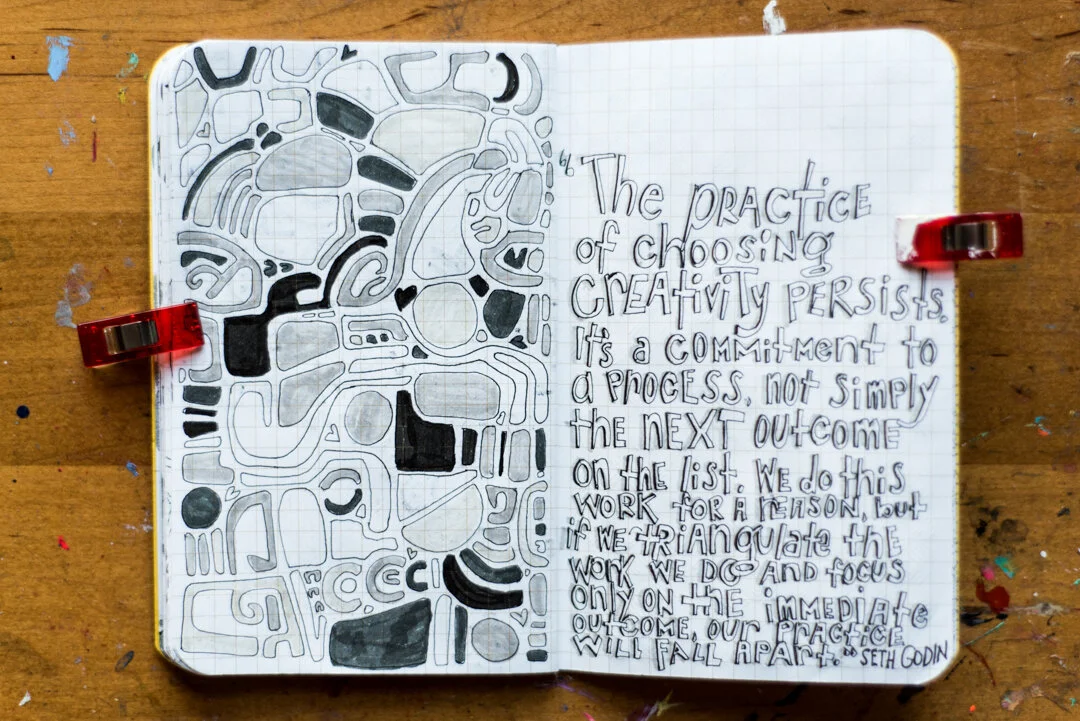 "The PRACTICE
of choosing
CREAtiVity PERSists.
It's a COMMitment to
a PROCESS, not simply
the NEXT OUtCOME
on the list. We do this
WORK for A REASON, but
if WE tRiANgUlate the
WORK WE DO AND fOCUS
Only ON the iMMEDiAte
OUtCOME, OUR PRACtiCE
WILL FALL APARt." SETH GODIN